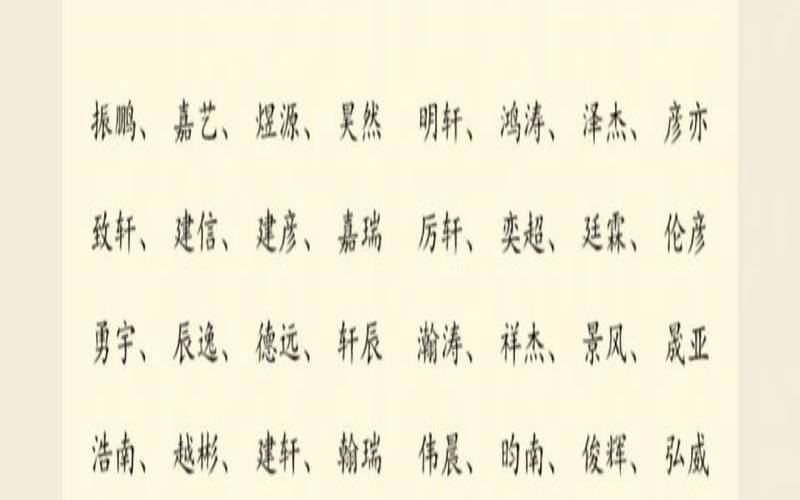 振鹏、嘉艺、煜源、昊然 明轩、鸿涛、泽杰、彦亦
致轩、建信、建彦、嘉瑞 厉轩、奕超、廷霖、伦彦
勇宇、辰逸、德远、轩辰 瀚涛、祥杰、景风、晟亚
浩南、越彬、建轩、翰瑞 伟晨、昀南、俊辉、弘威